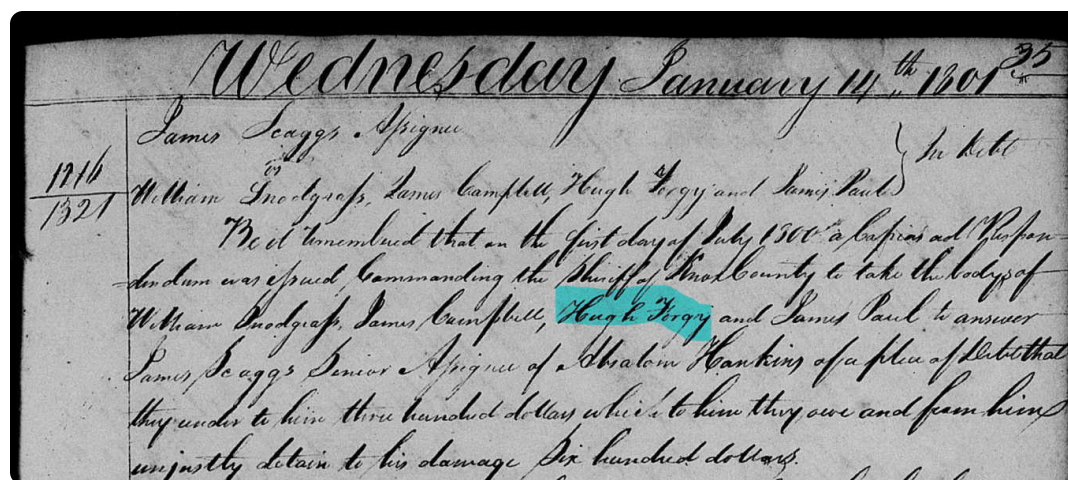 Wednesday January 14th 1801 35
James Scaggs Assignee
vs
In Debt
1216
1321
William Snodgrass, James Campbell, Hugh Forgy and James Paul
Be it remembered that on the first day of July 1800 a Capias ad Respon-
-dendum was issued, Commanding the Sheriff of Knox County to take the bodys of
William Snodgrass, James Campbell, Hugh Forgy and James Paul to answer
James Scaggs Senior Assignee of Absalom Hankins of a plea of Debt that
they render to him three hundred dollars which to him they owe and from him
unjustly detain to his damage Six hundred dollars.